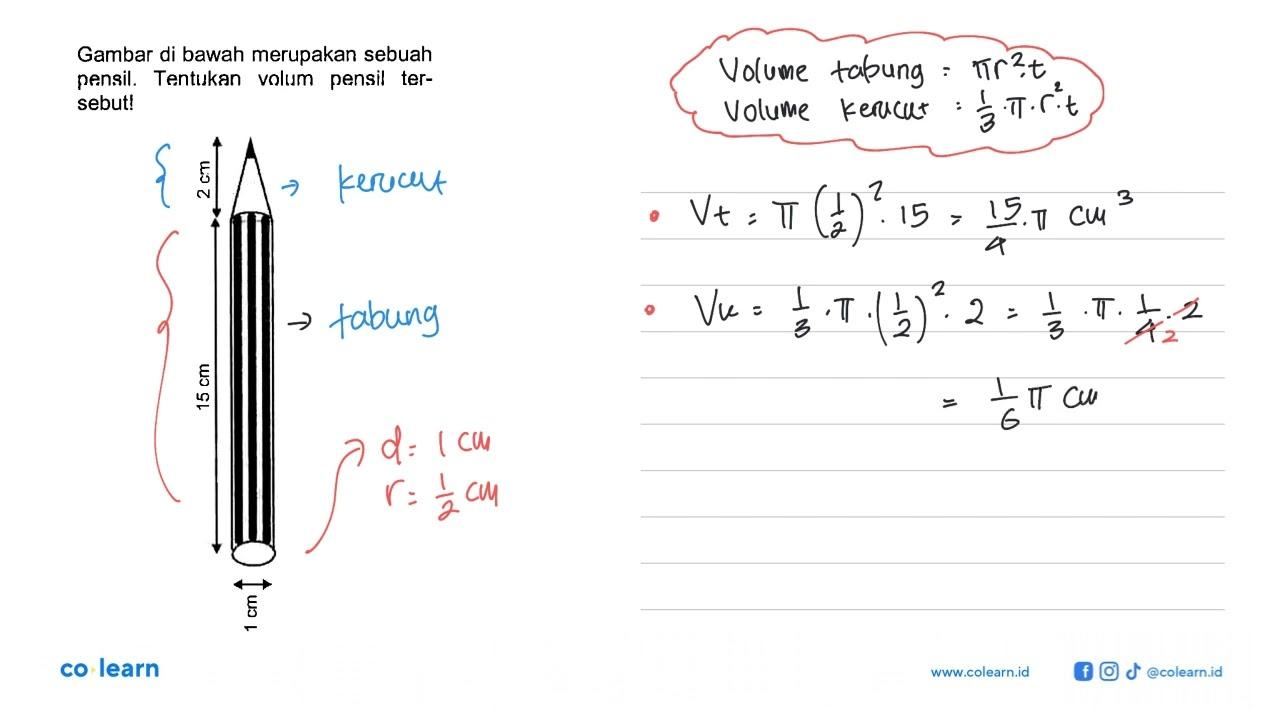 Gambar di bawah merupakan sebuah
pensil. Tentukan volum pensil ter-
sebut!
2 cm
kerucut
15 cm
tabung
d = 1 cm
r = 1/2 cm
1 cm
Volume tabung = πr².t
Volume kerucut = 1/3 · π · r² · t
• Vt = π (1/2)² · 15 = 15/4 · π cm³
• Vk = 1/3 · π · (1/2)² · 2 = 1/3 · π · 1/4 · 2 2
= 1/6 π cm
co learn
www.colearn.id
@colearn.id